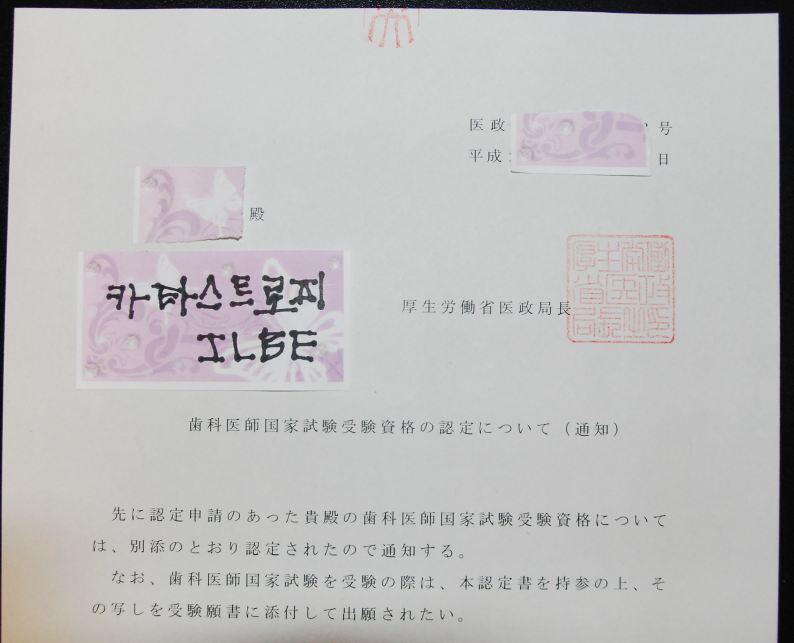 医政 号
平成 日
殿
카타스트로피
ILBE
厚生労働省医政局長
歯科医師国家試験受験資格の認定について（通知）
先に認定申請のあった貴殿の歯科医師国家試験受験資格について
は、別添のとおり認定されたので通知する。
なお、歯科医師国家試験を受験の際は、本認定書を持参の上、そ
の写しを受験願書に添付して出願されたい。